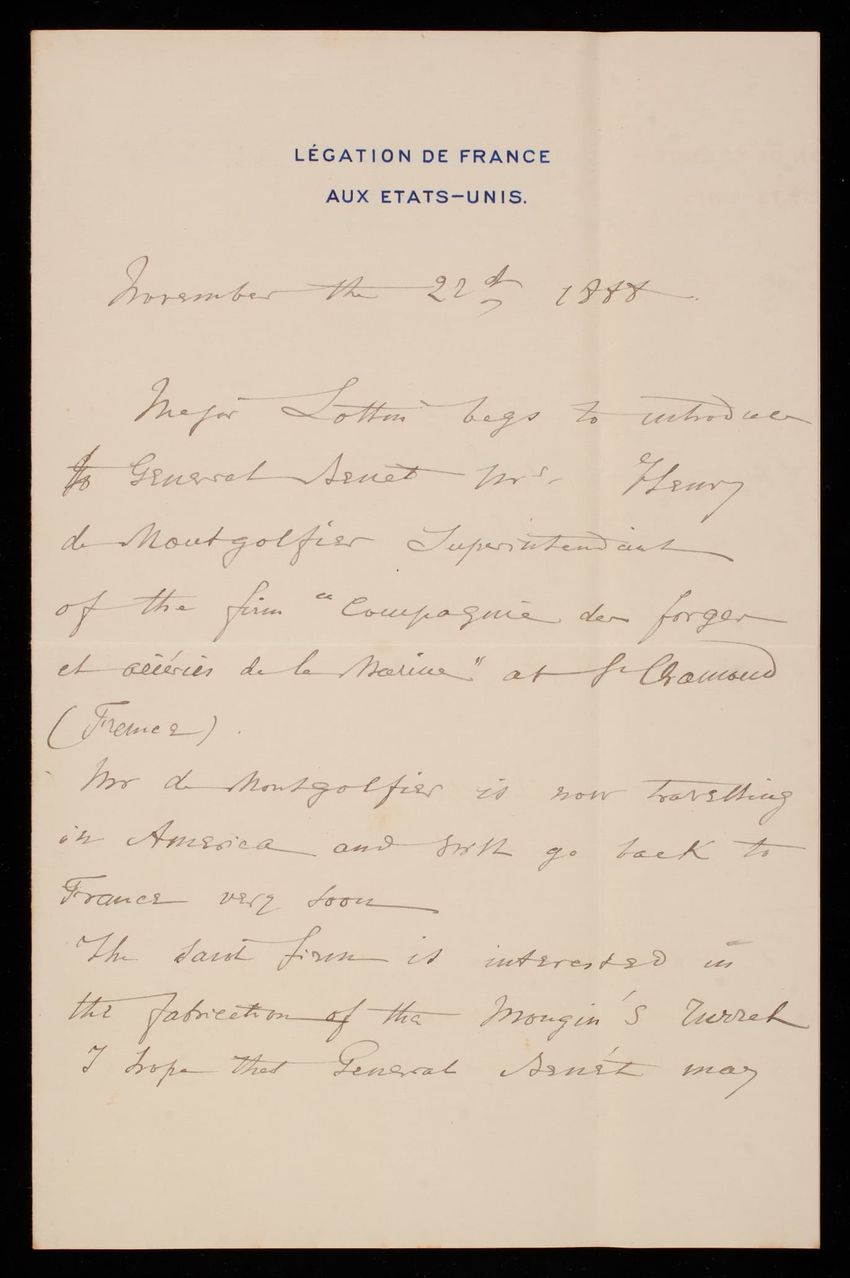 LÉGATION DE FRANCE
AUX ETATS-UNIS.
November the 22d 1888.
Major Lottin begs to introduce
to General Benét Mr. Henry
de Montgolfier Superintendant
of the firm "Compagnie des forges
et aciéries de la Marine" at St Chamond
(France).
Mr de Montgolfier is now travelling
in America and will go back to
France very soon
The said firm is interested in
the fabrication of the Mougin's Turret
I hope that General Benét may